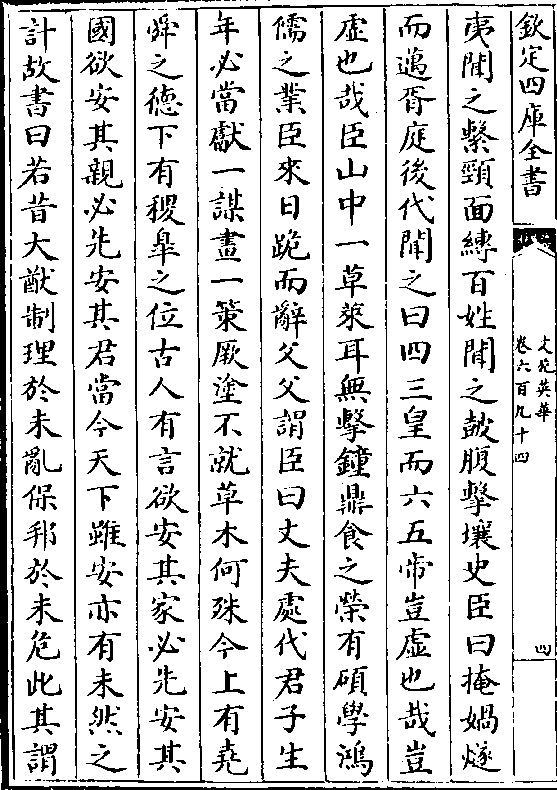 欽定四庫全書
文苑英華
卷六百九十四
四
夷聞之繫頸面縛百姓聞之鼓腹擊壤史臣曰掩媧燧
而邁胥庭後代聞之曰四三皇而六五帝豈虛也哉豈
虛也哉臣山中一草萊耳無擊鐘鼎食之榮有碩學鴻
儒之業臣來日跪而辭父父謂臣曰丈夫處代君子生
年必當獻一謀畫一策厥塗不就草木何殊今上有堯
舜之德下有稷臯之位古人有言欲安其家必先安其
國欲安其親必先安其君當今天下雖安亦有未然之
計故書曰若昔大猷制理於未亂保邦於未危此其謂